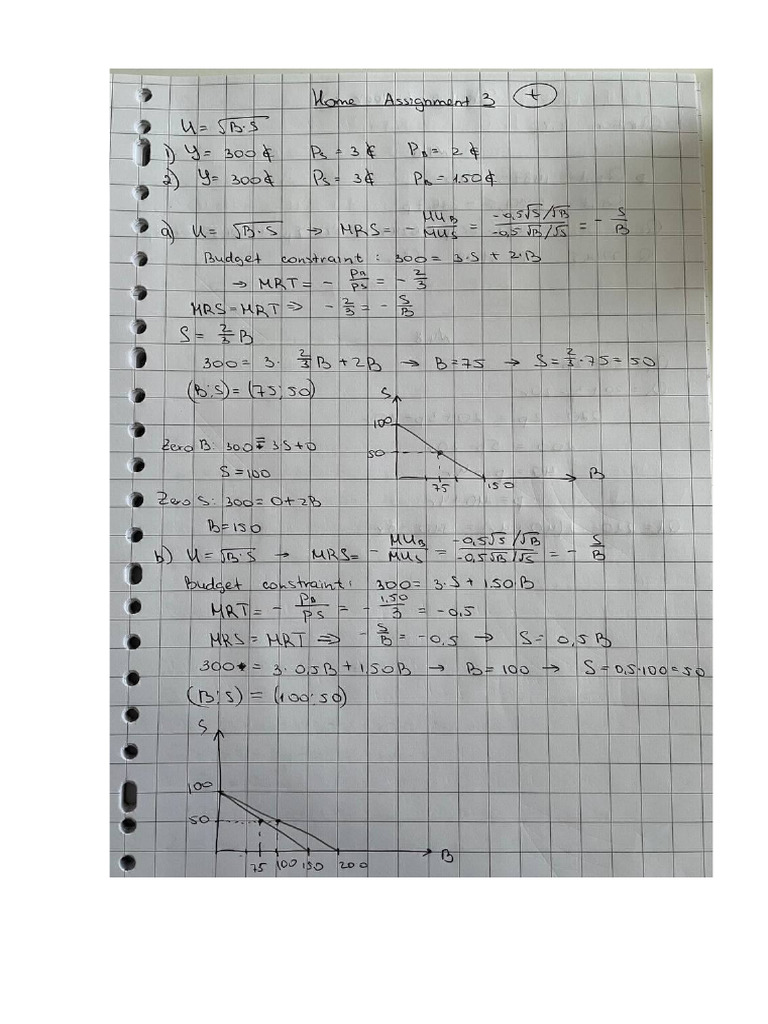 Home Assignment 3 +
U = √B·S
1) Y = 300 ₵ Ps = 3 ₵ PB = 2 ₵
2) Y = 300 ₵ Ps = 3 ₵ PB = 1.50 ₵
a) U = √B·S → MRS = - MUB/MUS = -0,5√S/√B / -0,5√B/√S = - S/B
Budget constraint: 300 = 3·S + 2·B
→ MRT = - PB/PS = - 2/3
MRS = MRT ⇒ - 2/3 = - S/B
S = 2/3 B
300 = 3· 2/3 B + 2B → B = 75 → S = 2/3 · 75 = 50
(B;S) = (75; 50)
S
100
50
B
75 150
Zero B: 300 = 3·S + 0
S = 100
Zero S: 300 = 0 + 2B
B = 150
b) U = √B·S → MRS = - MUB/MUS = -0,5√S/√B / -0,5√B/√S = - S/B
Budget constraint: 300 = 3·S + 1.50·B
MRT = - PB/PS = - 1.50/3 = -0,5
MRS = MRT ⇒ - S/B = -0,5 → S = 0,5B
300 = 3·0,5B + 1,50B → B = 100 → S = 0,5·100 = 50
(B;S) = (100; 50)
S
100
50
B
75 100 150 200